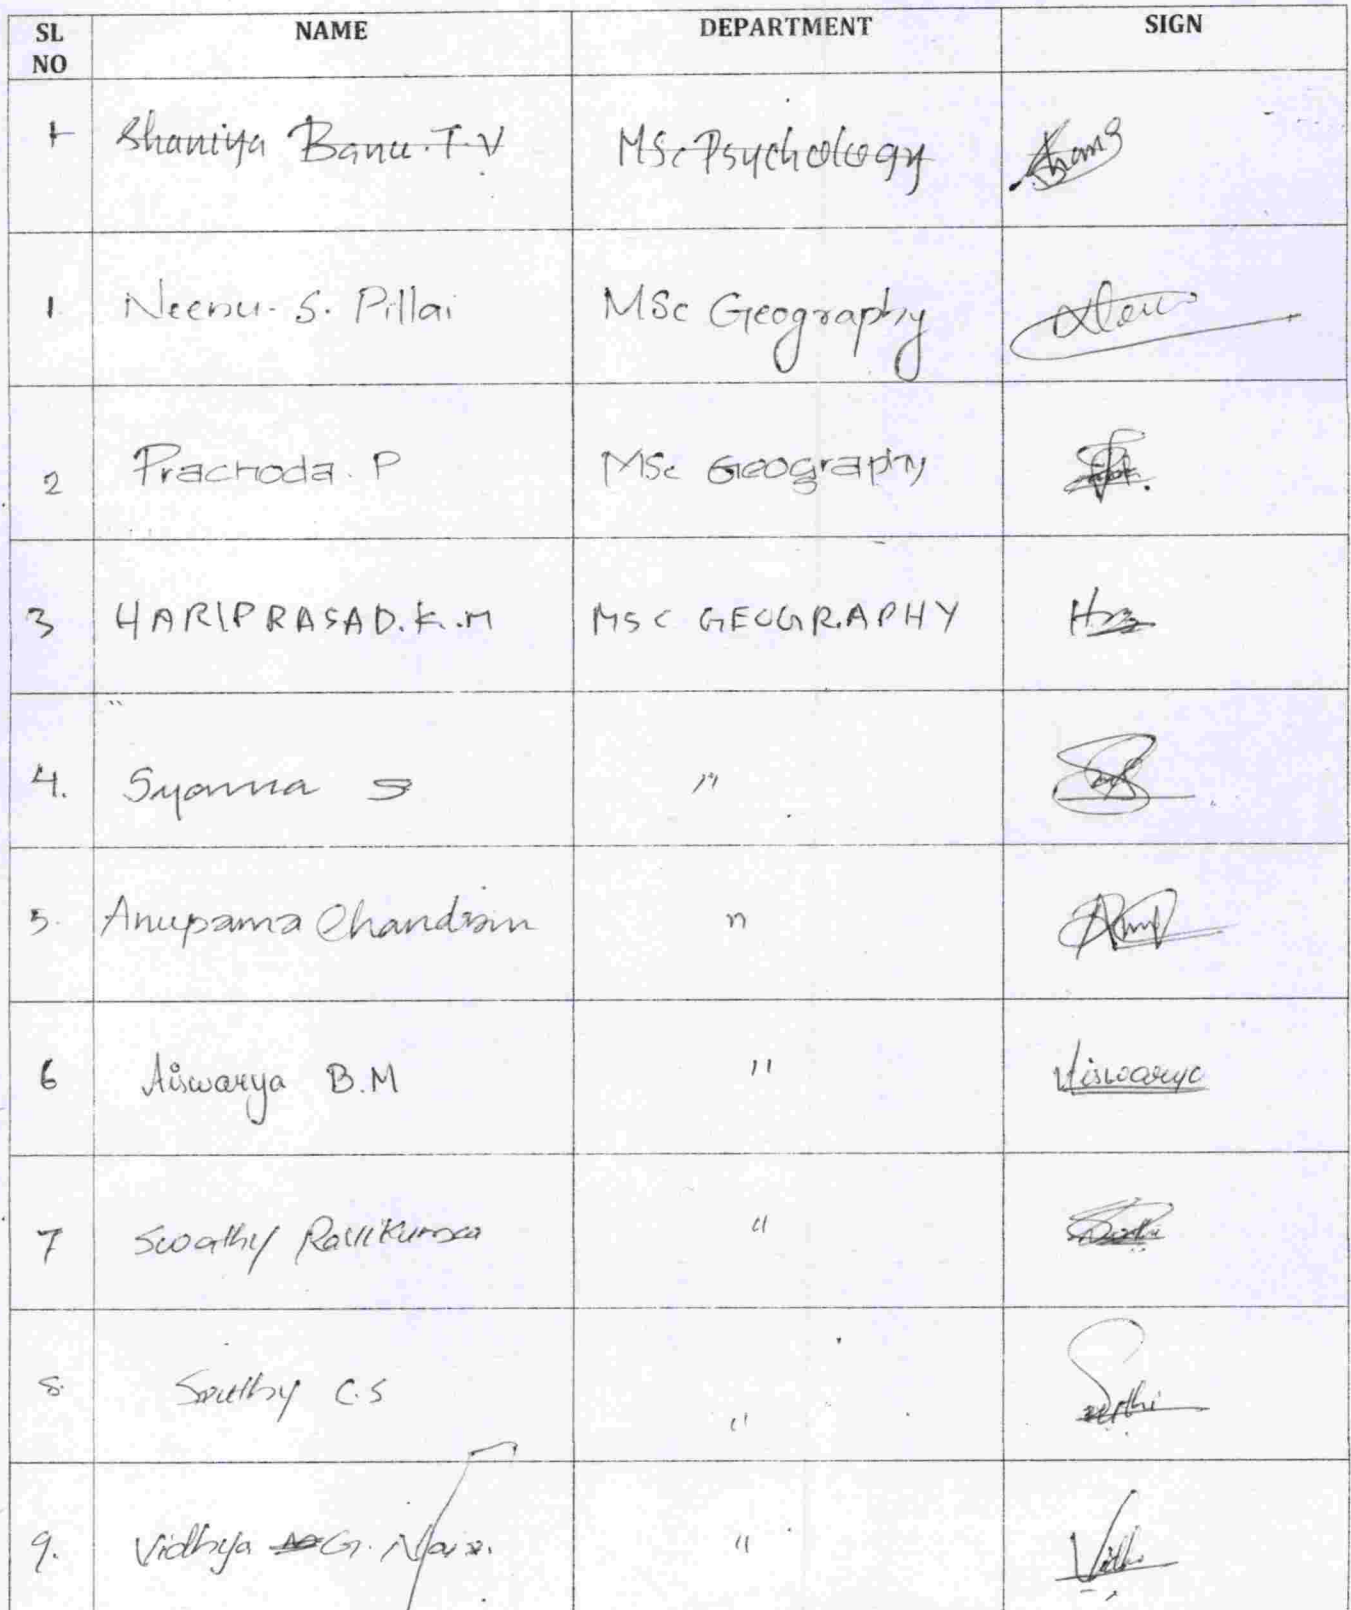 SL NO NAME DEPARTMENT SIGN
1 Shaniya Banu. T. V MSc Psychology
1. Neenu. S. Pillai MSc Geography
2 Prachoda. P MSc Geography
3 HARIPRASAD. K. M MSC GEOGRAPHY
4. Syamna S "
5. Anupama Chandran "
6 Aiswarya B.M " Aiswarya
7 Swathy Ravikumar "
8. C.S "
9. Vidhya G. Nair. "